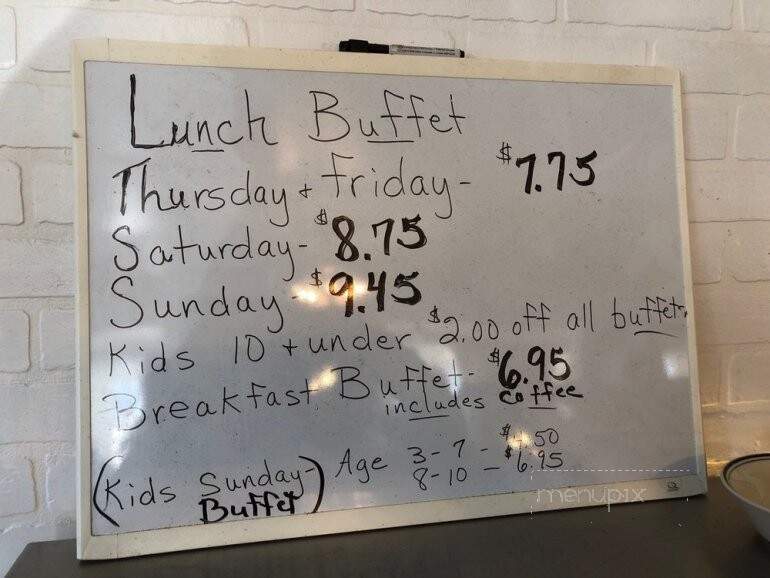 Lunch Buffet
Thursday + Friday- $7.75
Saturday- $8.75
Sunday- $9.45
Kids 10 + under $2.00 off all buffet
Breakfast Buffet- $6.95
includes coffee
(Kids Sunday- Buffet)
Age 3-7 - $ .50
8-10 - $6.95
menupix